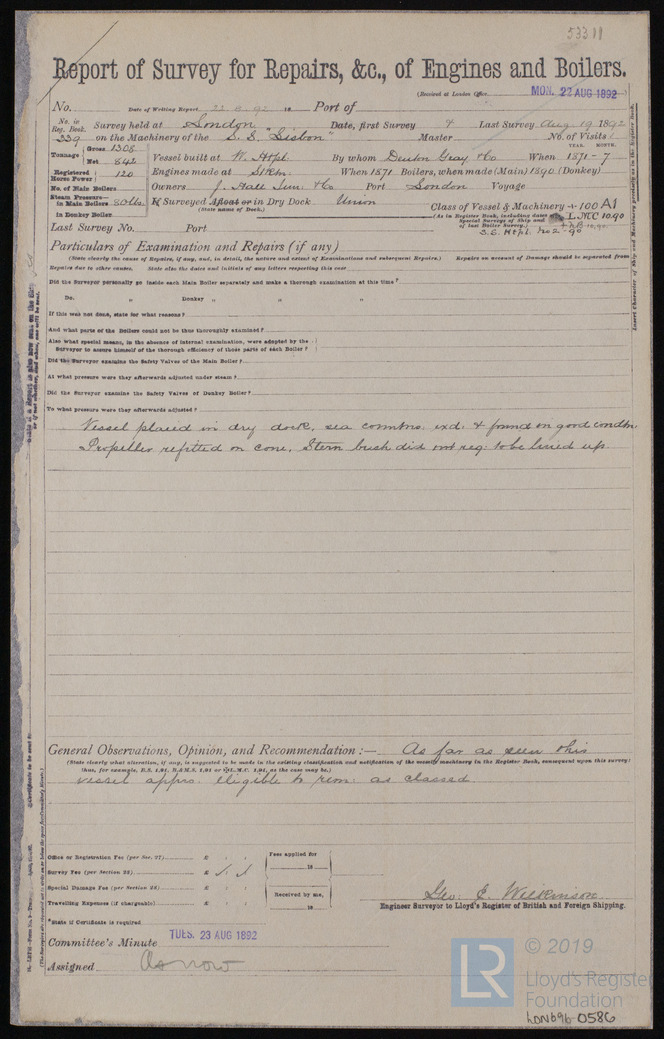 533 11
Report of Survey for Repairs, &c., of Engines and Boilers.
(Received at London Office MON. 22 AUG 1892)
No. Date of Writing Report 22 8 92 18 Port of
No. in Reg. Book. Survey held at London Date, first Survey & Last Survey Aug 19 1892
239 on the Machinery of the S.S. "Lisbon" Master No. of Visits 1
Tonnage Gross 1308 Net 842
YEAR. MONTH.
Vessel built at W. Htpl. By whom Denton Gray & Co When 1871 - 7
Registered Horse Power 120 Engines made at When 1871 Boilers, when made (Main) 1890 (Donkey)
No. of Main Boilers Owners J. Hall Jun. & Co Port London Voyage
Steam Pressure— in Main Boilers 80 lbs. If Surveyed Afloat or in Dry Dock Union Class of Vessel & Machinery + 100 A1
in Donkey Boiler (State name of Dock.) (As in Register Book, including dates of Special Surveys of Ship and of last Boiler Survey.) L.M.C 10.90
+ N.B. 10.90
Last Survey No. Port S.S. Htpl. No 2 - 90
Particulars of Examination and Repairs (if any)
(State clearly the cause of Repairs, if any, and, in detail, the nature and extent of Examinations and subsequent Repairs.) Repairs on account of Damage should be separated from
Repairs due to other causes. State also the dates and initials of any letters respecting this case
Did the Surveyor personally go inside each Main Boiler separately and make a thorough examination at this time?
Do. „ Donkey „ „ „
If this was not done, state for what reasons?
And what parts of the Boilers could not be thus thoroughly examined?
Also what special means, in the absence of internal examination, were adopted by the
Surveyor to assure himself of the thorough efficiency of those parts of each Boiler?
Did the Surveyor examine the Safety Valves of the Main Boiler?
At what pressure were they afterwards adjusted under steam?
Did the Surveyor examine the Safety Valves of Donkey Boiler?
To what pressure were they afterwards adjusted?
Vessel placed in dry dock, sea connctns. exd. & found in good condtn.
Propeller refitted on cone, Stern bush did not req. to be lined up
General Observations, Opinion, and Recommendation:— As far as seen this
(State clearly what alteration, if any, is suggested to be made in the existing classification and notification of the vessel's machinery in the Register Book, consequent upon this survey:
thus, for example, B.S. 1,91, B.& M.S. 1,91 or L.M.C. 1,91, as the case may be.)
vessel apprs. eligible to rem. as classed
Office or Registration Fee (per Sec. 27) £ Fees applied for
Survey Fee (per Section 28) £ 1.1 18
Special Damage Fee (per Section 28) £ Received by me,
Travelling Expenses (if chargeable) £ 18
Geo. E. Wilkinson
Engineer Surveyor to Lloyd's Register of British and Foreign Shipping.
*State if Certificate is required
Committee's Minute TUES. 23 AUG 1892
Assigned As now
LR © 2019
Lloyd's Register
Foundation
LON696-0586
Insert Character of Ship and Machinery precisely as in the Register Book.